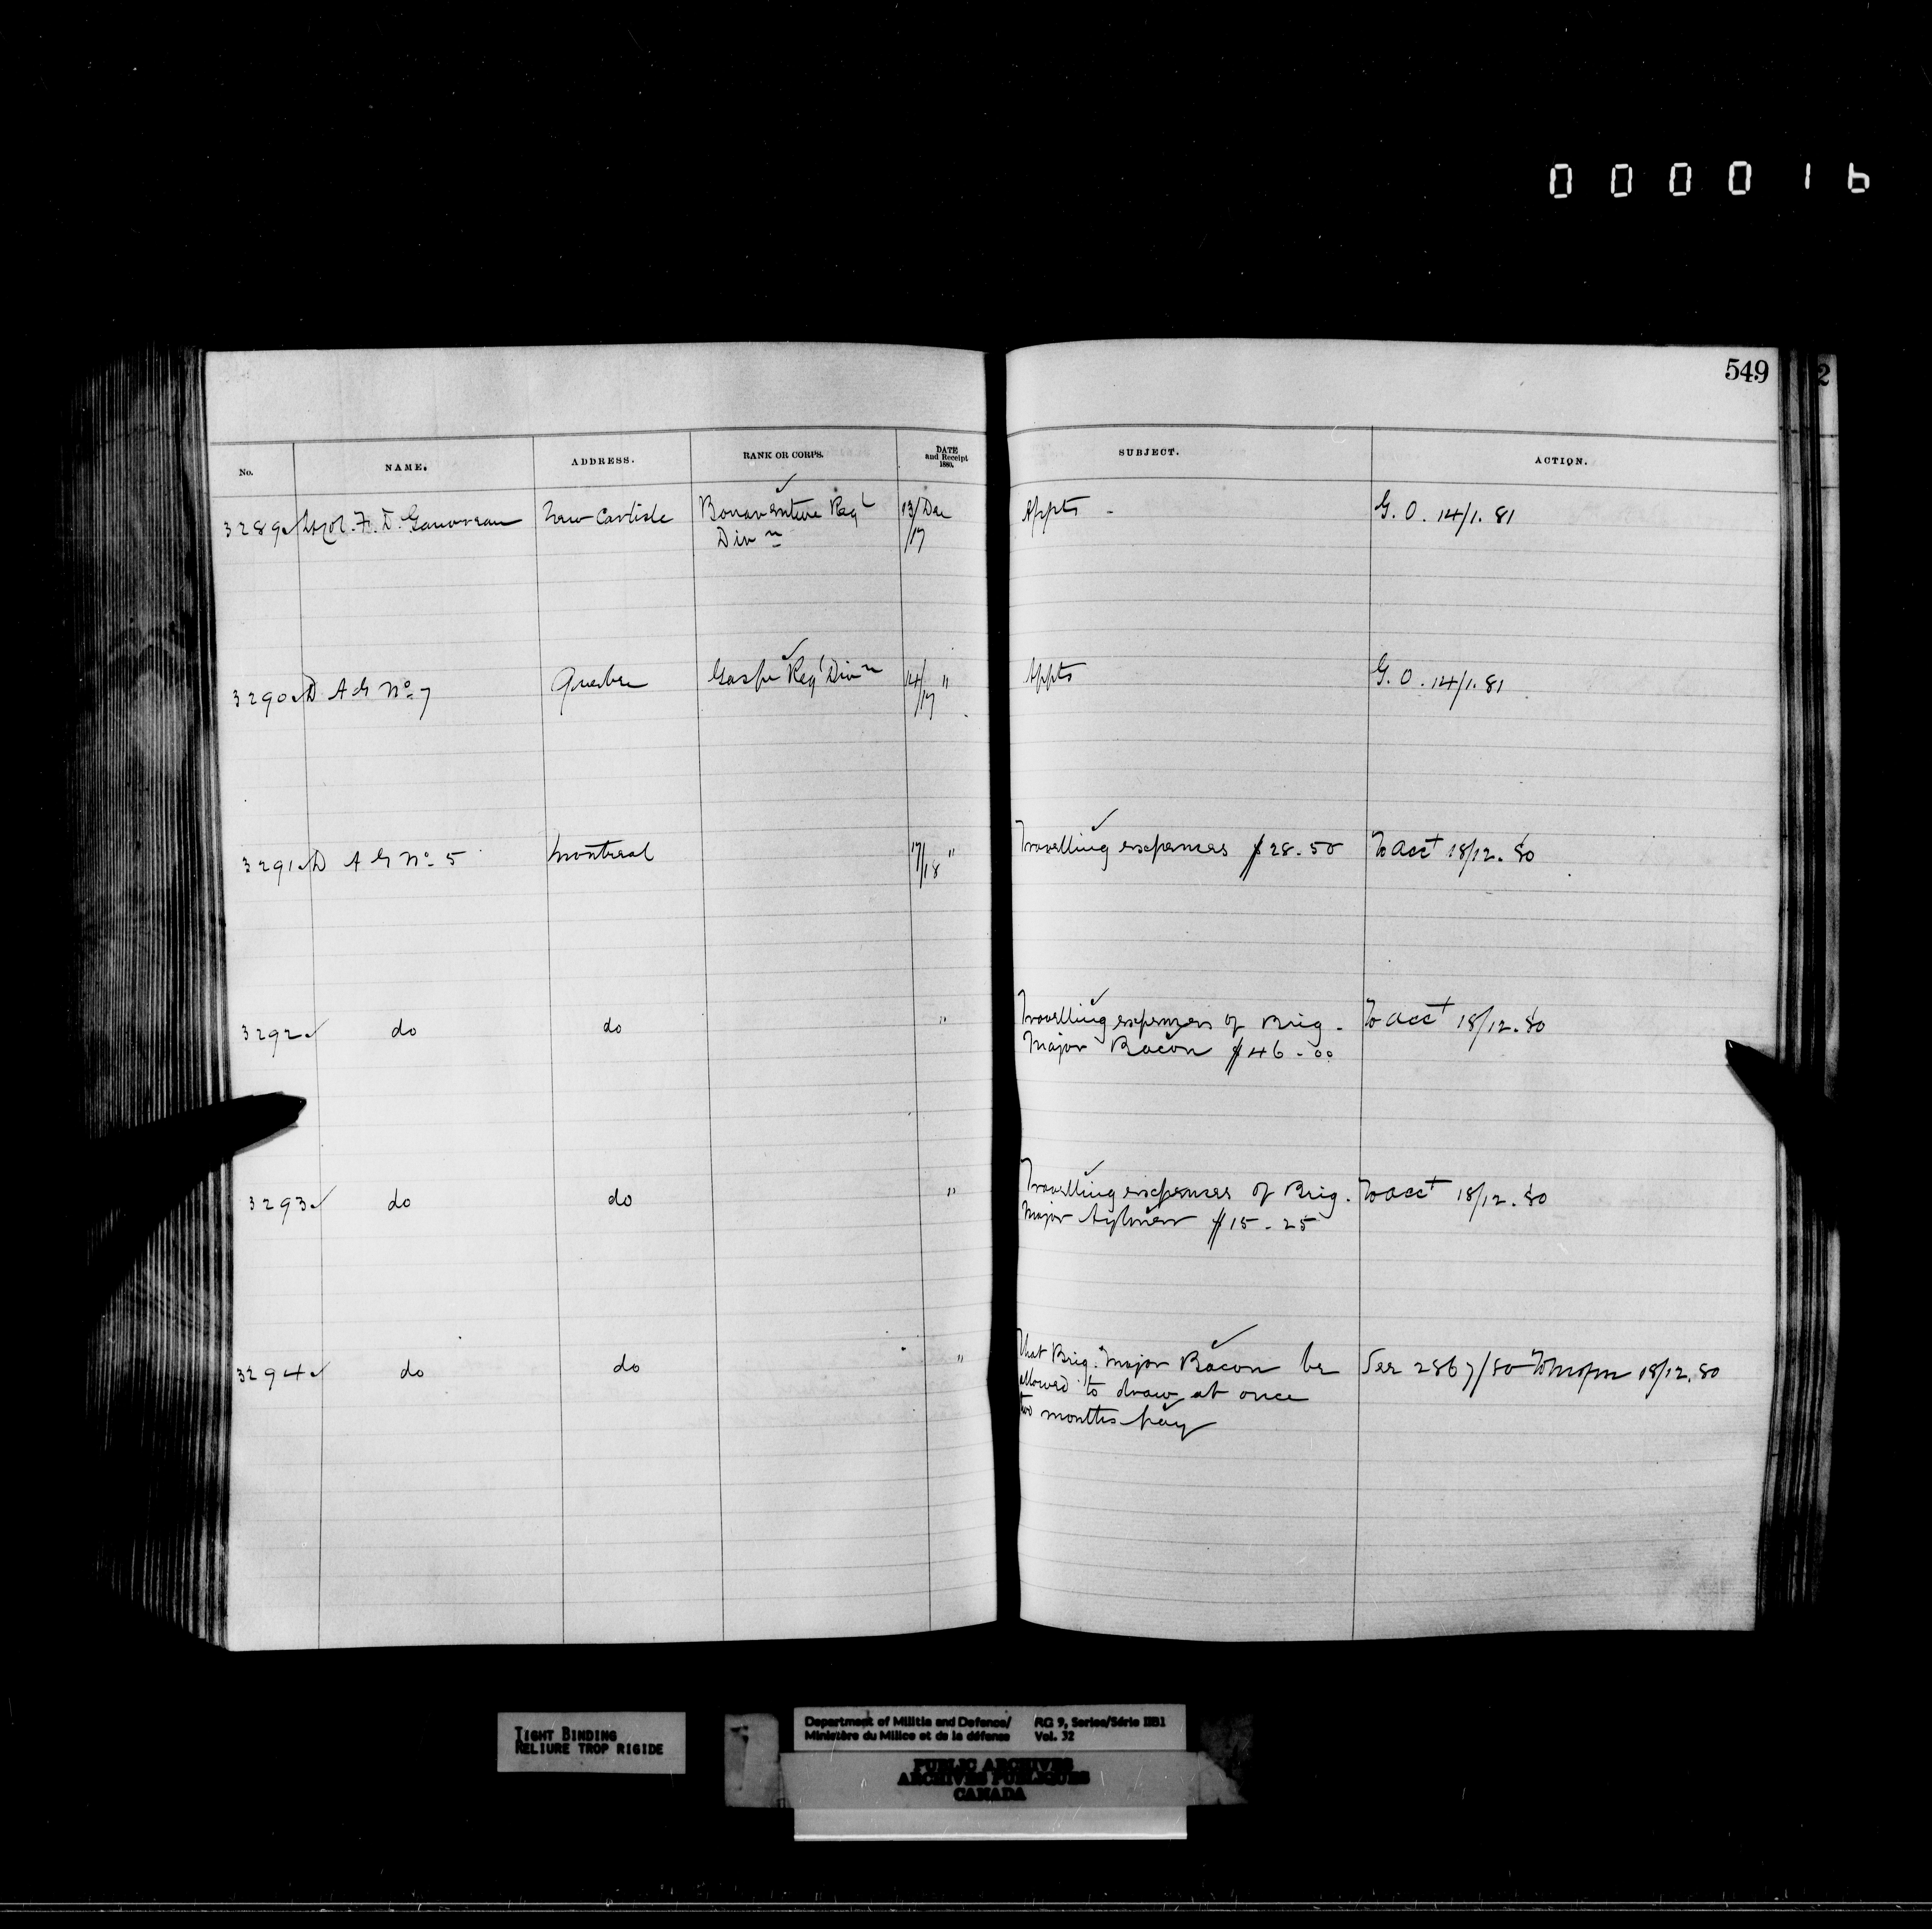 000016
549
No. NAME. ADDRESS. RANK OR CORPS. DATE and Receipt 1880. SUBJECT. ACTION.
3289 Lt Col. F. D. Gauvreau New Carlisle Bonaventure Regl 13/Dec Appts - G. O. 14/1. 81
Divn /17
3290 D A G No. 7 Quebec Gaspe Regl Divn 14/17 " Appts G. O. 14/1. 81
3291 D A G No. 5 Montreal 17/18 " Travelling expenses $28.50 To Acct 18/12. 80
3292 do do " Travelling expenses of Brig. To Acct 18/12. 80
Major Bacon $46.00
3293 do do " Travelling expenses of Brig. To Acct 18/12. 80
Major Aylmer $15.25
3294 do do " That Brig. Major Bacon be See 2867/80 18/12. 80
allowed to draw at once
two months pay
TIGHT BINDING
RELIURE TROP RIGIDE
Department of Militia and Defence/ RG 9, Series/Série IIB1
Ministère du Milice et de la défense Vol. 32
PUBLIC ARCHIVES
ARCHIVES PUBLIQUES
CANADA